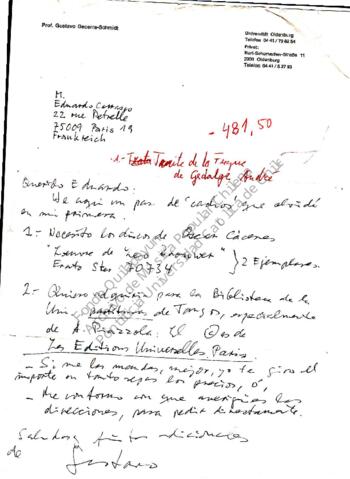 Prof. Gustavo Becerra-Schmidt
Universität Oldenburg
Telefon 04 41 / 79 82 54
Privat:
Kurt-Schumacher-Straße 11
2900 Oldenburg
Telefon 04 41 / 5 27 93
M.
Eduardo Carrasco
22 rue Petrelle
75009 Paris 19
Frankreich
- 481,50
1- Traité de la Fugue
de Gedalge, André
Querido Eduardo:
He aquí un par de "cachos" que olvidé
en mi primera.
1.- Necesito los discos de Oscar Cáceres
"Leo Brouwer" } 2 Ejemplares.
Erato Stu 70734
2.- Quiero adquirir para la Biblioteca de la
Uni- partituras de Tangos, especialmente
de A. Piazzola. El © es de
Les Editions Universelles, Paris.
- Si me los mandas, mejor, yo te giro el
importe en cuanto sepas los precios, ó,
- Me conformo con que averigües las
direcciones, para pedir directamente.
Saludos
de Gustavo
Fondo Quilapayún